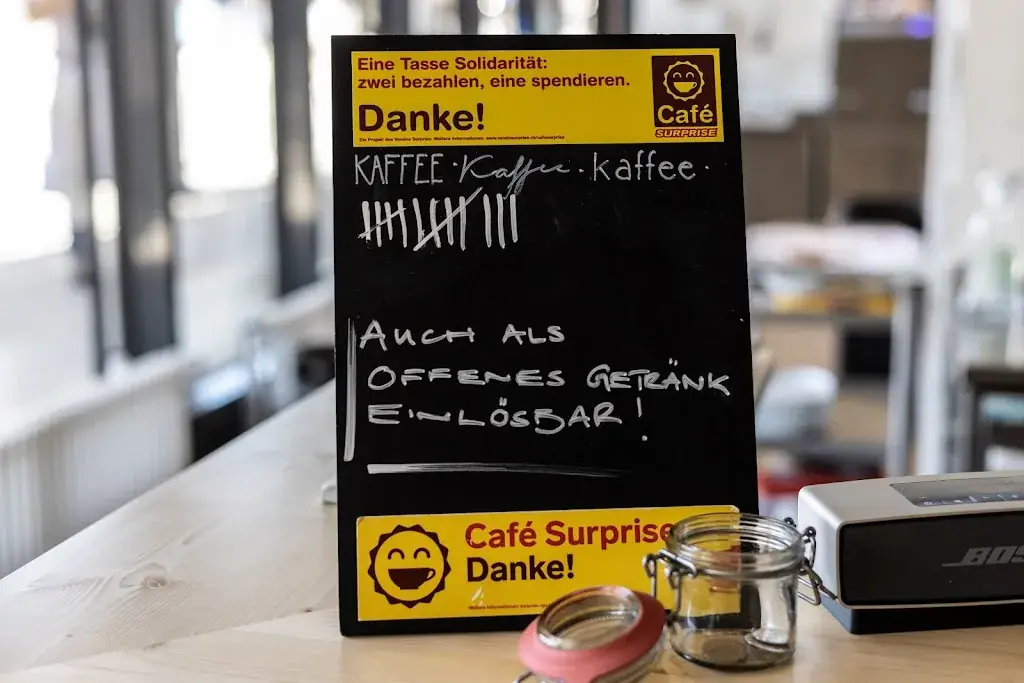 Eine Tasse Solidarität:
zwei bezahlen, eine spendieren.
Danke!
Ein Projekt des Vereins Surprise. Weitere Informationen: www.vereinsurprise.ch/cafesurprise
Café
SURPRISE
KAFFEE · Kaffee · kaffee ·
AUCH ALS
OFFENES GETRÄNK
EINLÖSBAR!
Café Surprise
Danke!
Weitere Informationen:
BOS